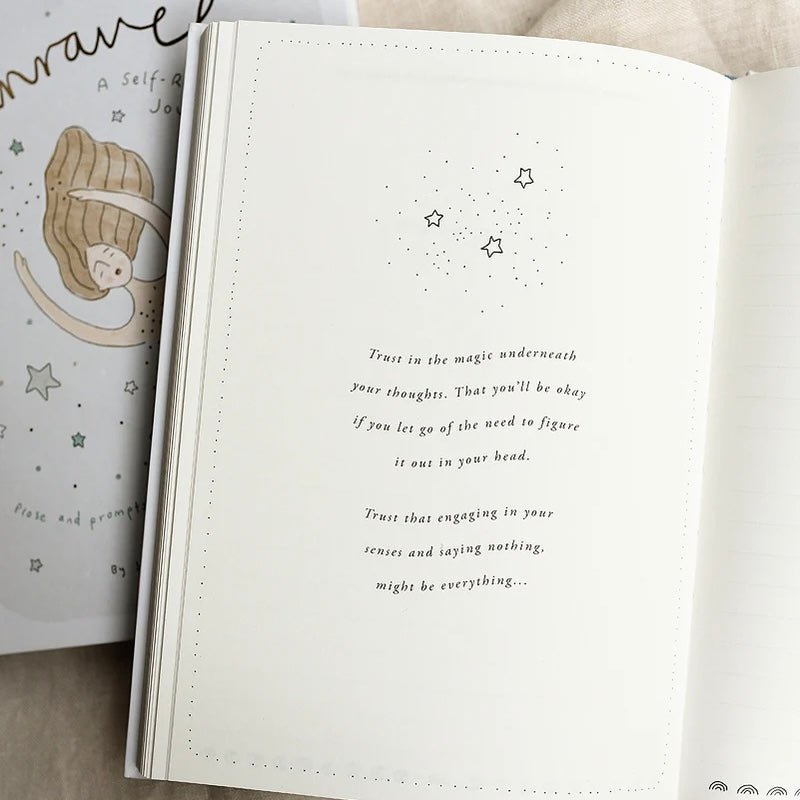 A Self-
Prose and prompts
By
Trust in the magic underneath
your thoughts. That you'll be okay
if you let go of the need to figure
it out in your head.
Trust that engaging in your
senses and saying nothing,
might be everything...